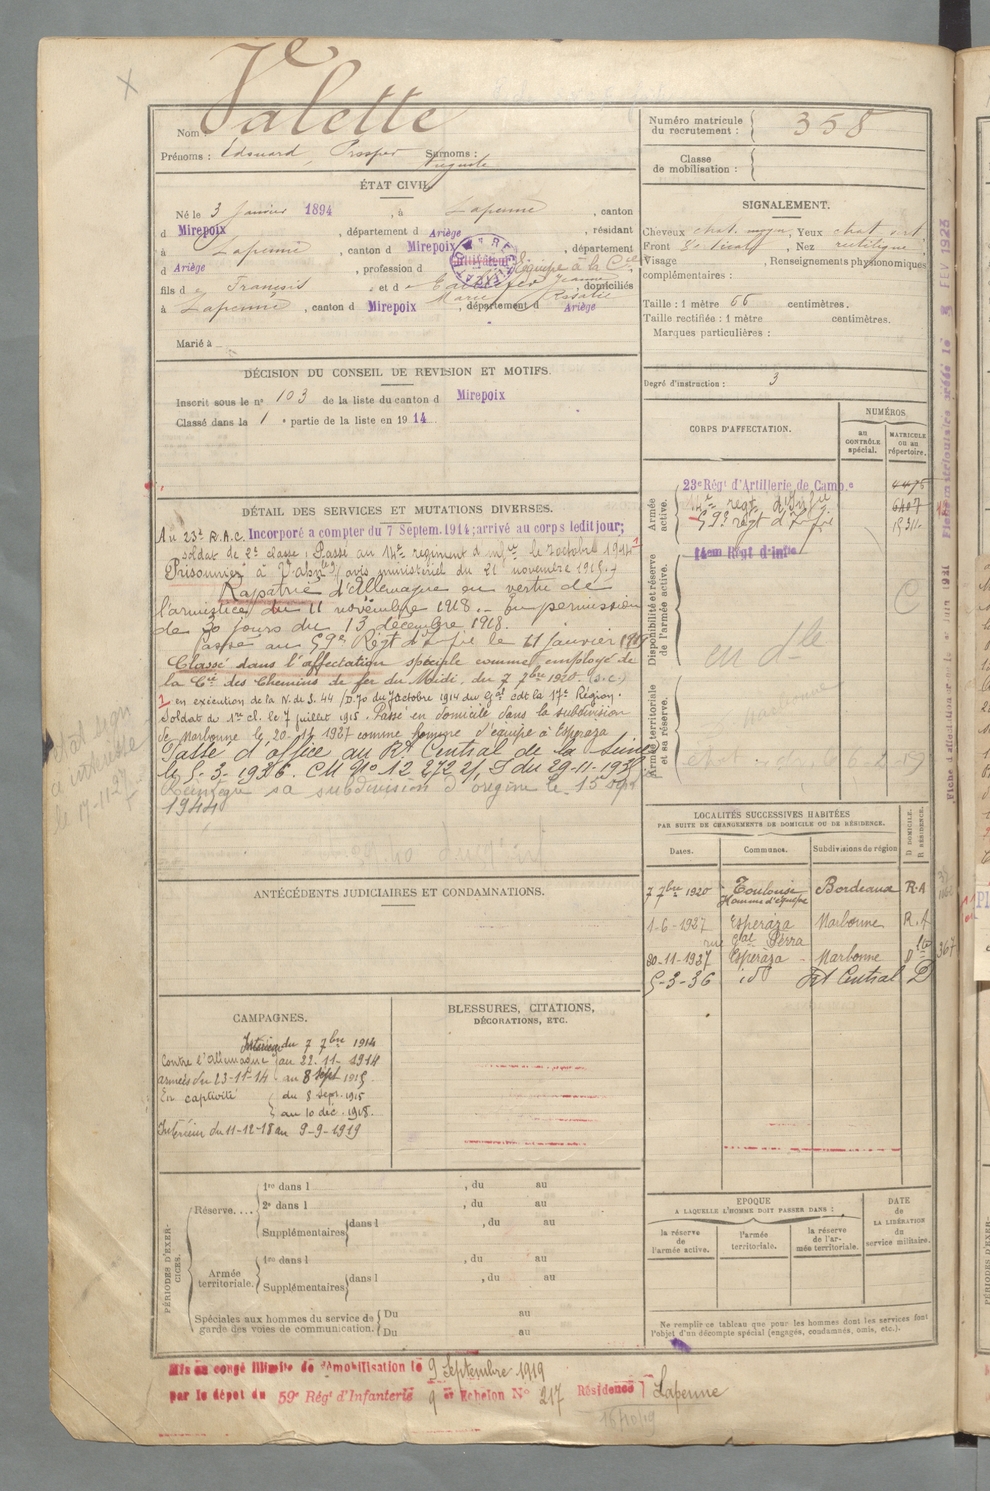 Valette
Nom
Prénoms : Edouard, Prosper Surnoms :
Auguste
ÉTAT CIVIL.
Né le 3 Janvier 1894, à Lapenne, canton
d Mirepoix, département d Ariège, résidant
à Lapenne, canton d Mirepoix, département
d Ariège, profession d Cultivateur Equipe à la Cie
fils de François et de Jeanne, domiciliés
Marie Rosalie
à Lapenne, canton d Mirepoix, département d Ariège
Marié à
DÉCISION DU CONSEIL DE REVISION ET MOTIFS.
Inscrit sous le no 103 de la liste du canton d Mirepoix
Classé dans la 1 e partie de la liste en 1914
DÉTAIL DES SERVICES ET MUTATIONS DIVERSES.
Au 23e R.A.C. Incorporé a compter du 7 Septem. 1914; arrivé au corps ledit jour;
soldat de 2e classe. Passé au 14e regiment d'Infie le 7 octobre 1914 1
Prisonnier à (avis ministériel du 21 novembre 1915.)
Rapatrié d'Allemagne en vertu de
l'armistice du 11 novembre 1918. - En permission
de 30 jours du 13 décembre 1918.
Passé au 59e Régt d'Infie le 11 janvier 1919
Classé dans l'affectation spéciale comme employé de
la Cie des Chemins de fer du Midi, du 7 7bre 1920. (S.C.)
1 en exécution de la N. de S. 44/D. 70 du 7 octobre 1914 du Gal cdt la 17e Région.
Soldat de 1re cl. le 7 juillet 1915. Passé en domicile dans la subdivision
de Narbonne le 20-11 1927 comme homme d'équipe à Esperaza
Passé d'office au Rt Central de la Seine
le 5-3-1936. CM No 12 272 du 29-11-193
Réintégré sa subdivision d'origine le 15 Sept
1944
ANTÉCÉDENTS JUDICIAIRES ET CONDAMNATIONS.
CAMPAGNES.
Intérieur du 7 7bre 1914
Contre l'Allemagne au 22-11-1914
armées du 23-11-14 au 8 Sept 1915
En captivité du 8 Sepr. 1915
au 10 déc. 1918.
Intérieur du 11-12-18 au 9-9-1919
BLESSURES, CITATIONS,
DÉCORATIONS, ETC.
PÉRIODES D'EXERCICES.
Réserve....
1re dans l , du au
2e dans l , du au
Supplémentaires dans l , du au
Armée
territoriale.
1re dans l , du au
Supplémentaires dans l , du au
Spéciales aux hommes du service de
garde des voies de communication.
Du au
Du au
Numéro matricule
du recrutement : 358
Classe
de mobilisation :
SIGNALEMENT.
Cheveux chat. moyen, Yeux chat
Front Vertical, Nez rectiligne
Visage , Renseignements physionomiques
complémentaires :
Taille : 1 mètre 66 centimètres.
Taille rectifiée : 1 mètre centimètres.
Marques particulières :
Degré d'instruction : 3
CORPS D'AFFECTATION.
NUMÉROS
au
CONTRÔLE
spécial.
MATRICULE
ou au
répertoire.
Armée
active.
23e Régt d'Artillerie de Camp.e 4475
14e regt d'Infie 6407
59e régt d'Infie
Disponibilité et réserve
de l'armée active.
14em Régt d'infie
C
en dle
Armée territoriale
et sa réserve.
Narbonne
LOCALITÉS SUCCESSIVES HABITÉES
PAR SUITE DE CHANGEMENTS DE DOMICILE OU DE RÉSIDENCE.
Dates. Communes. Subdivisions de région D DOMICILE. R RÉSIDENCE.
7 7bre 1920 Toulouse Bordeaux R.A
Homme d'équipe
1-6-1927 Esperaza Narbonne R.A
rue Gal Serra
20-11-1927 Esperaza - Narbonne D
5-3-36 ido Rt Central D
367
EPOQUE
A LAQUELLE L'HOMME DOIT PASSER DANS :
la réserve
de
l'armée active.
l'armée
territoriale.
la réserve
de l'ar-
mée territoriale.
DATE
de
LA LIBÉRATION
du
service militaire.
Ne remplir ce tableau que pour les hommes dont les services font
l'objet d'un décompte spécial (engagés, condamnés, omis, etc.).
Mis en congé illimité de démobilisation le 9 Septembre 1919
par le dépôt du 59e Régt d'Infanterie 9 er Echelon No 217 Résidence Lapenne
le 17-11-27